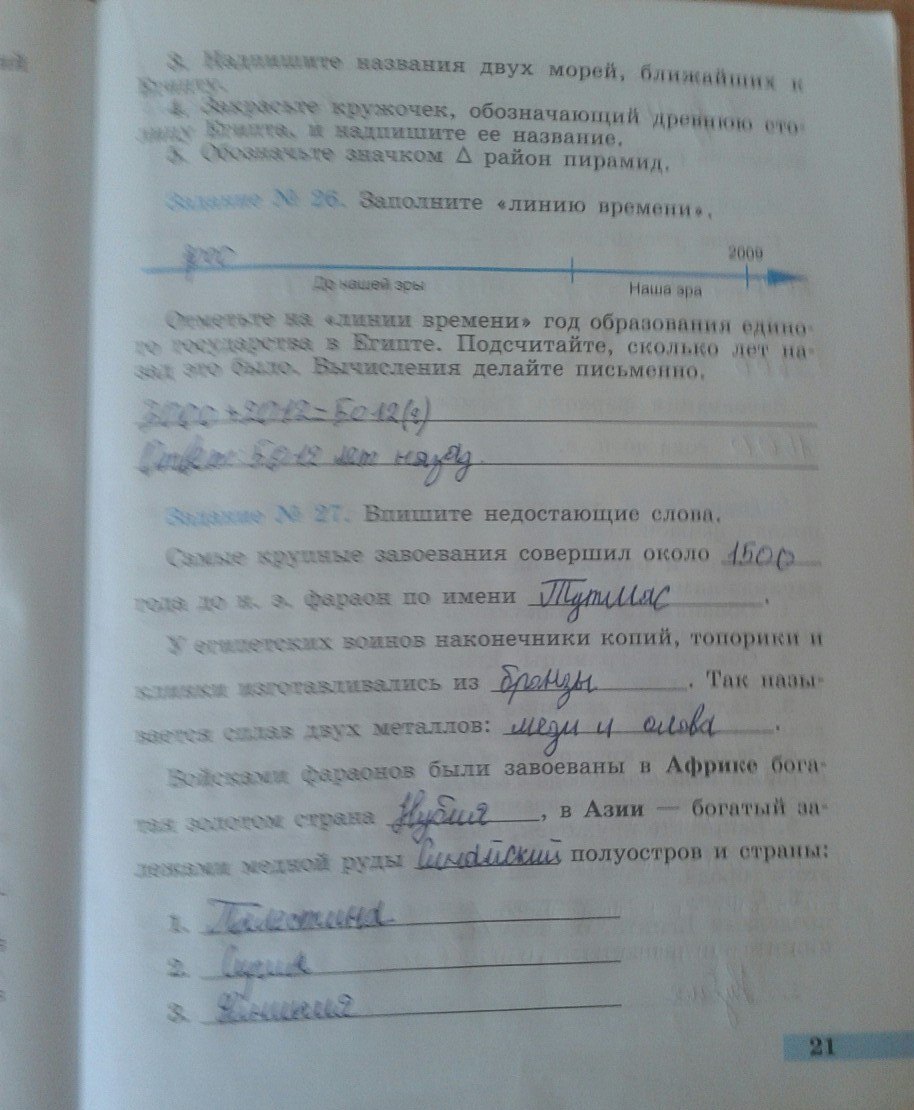 3. Надпишите названия двух морей, ближайших к
Египту.
4. Закрасьте кружочек, обозначающий древнюю сто-
лицу Египта, и надпишите ее название.
5. Обозначьте значком Δ район пирамид.
Задание № 26. Заполните «линию времени».
2009
До нашей эры
Наша эра
Отметьте на «линии времени» год образования едино-
го государства в Египте. Подсчитайте, сколько лет на-
зад это было. Вычисления делайте письменно.
3000+2012=5012(г)
Ответ: 5012 лет назад.
Задание № 27. Впишите недостающие слова.
Самые крупные завоевания совершил около 1500
года до н. э. фараон по имени Тутмас.
У египетских воинов наконечники копий, топорики и
клинки изготавливались из бронзы. Так назы-
вается сплав двух металлов: меди и олова.
Войсками фараонов были завоеваны в Африке бога-
тая золотом страна Нубия, в Азии — богатый за-
лежами медной руды Синайский полуостров и страны:
1. Палестина
2. Сирия
3. Финикия
21